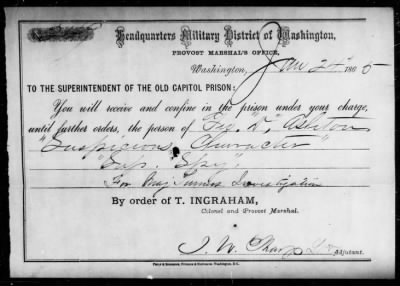 Headquarters Military District of Washington,
PROVOST MARSHAL'S OFFICE,
Washington, Jan 24th 1865
TO THE SUPERINTENDENT OF THE OLD CAPITOL PRISON:
You will receive and confine in the prison under your charge,
until further orders, the person of Ashton
"Suspicious Character"
"Sup. Spy"
For Maj Turners Investigation
By order of T. INGRAHAM,
Colonel and Provost Marshal.
Adjutant.